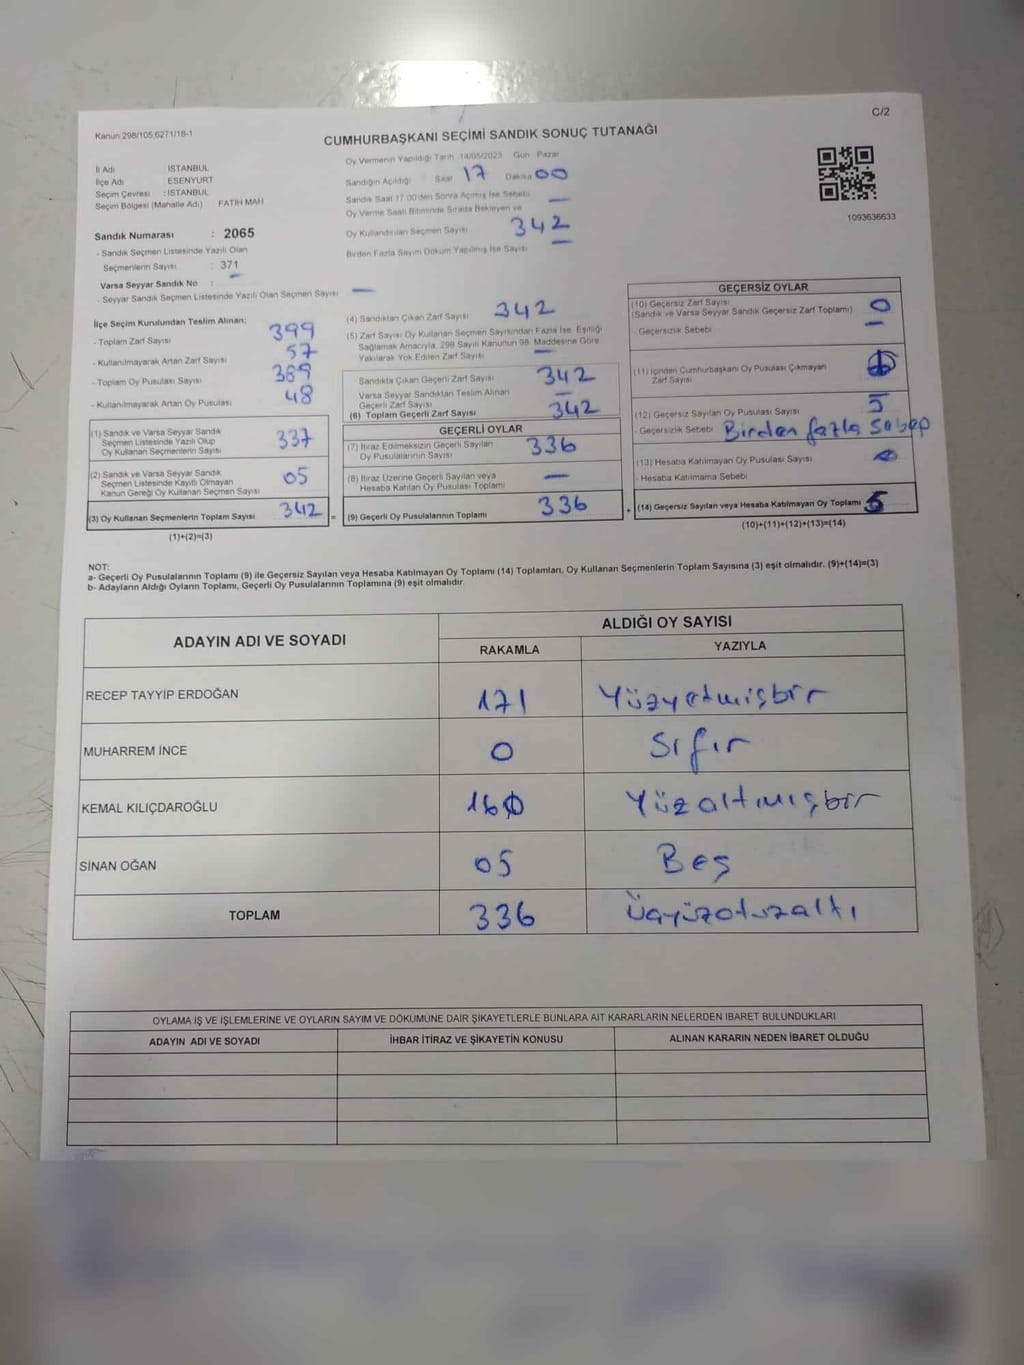 C/2
Kanun 298/105;6271/18-1
CUMHURBAŞKANI SEÇİMİ SANDIK SONUÇ TUTANAĞI
İl Adı : İSTANBUL
İlçe Adı : ESENYURT
Seçim Çevresi : İSTANBUL
Seçim Bölgesi (Mahalle Adı) FATİH MAH
Sandık Numarası : 2065
- Sandık Seçmen Listesinde Yazılı Olan
Seçmenlerin Sayısı : 371
Varsa Seyyar Sandık No : –
- Seyyar Sandık Seçmen Listesinde Yazılı Olan Seçmen Sayısı –
Oy Vermenin Yapıldığı Tarih 14/05/2023 Gün Pazar
Sandığın Açıldığı Saat 17 Dakika 00
Sandık Saat 17.00'den Sonra Açılmış İse Sebebi –
Oy Verme Saati Bitiminde Sırada Bekleyen ve
Oy Kullandırılan Seçmen Sayısı 342
Birden Fazla Sayım Döküm Yapılmış İse Sayısı –
1093636633
İlçe Seçim Kurulundan Teslim Alınan;
- Toplam Zarf Sayısı 399
- Kullanılmayarak Artan Zarf Sayısı 57
- Toplam Oy Pusulası Sayısı 389
- Kullanılmayarak Artan Oy Pusulası 48
(1) Sandık ve Varsa Seyyar Sandık
Seçmen Listesinde Yazılı Olup
Oy Kullanan Seçmenlerin Sayısı 337
(2) Sandık ve Varsa Seyyar Sandık
Seçmen Listesinde Kayıtlı Olmayan
Kanun Gereği Oy Kullanan Seçmen Sayısı 05
(3) Oy Kullanan Seçmenlerin Toplam Sayısı 342 =
(1)+(2)=(3)
(4) Sandıktan Çıkan Zarf Sayısı 342
(5) Zarf Sayısı Oy Kullanan Seçmen Sayısından Fazla İse, Eşitliği
Sağlamak Amacıyla, 298 Sayılı Kanunun 98. Maddesine Göre
Yakılarak Yok Edilen Zarf Sayısı –
Sandıkta Çıkan Geçerli Zarf Sayısı 342
Varsa Seyyar Sandıktan Teslim Alınan
Geçerli Zarf Sayısı –
(6) Toplam Geçerli Zarf Sayısı 342
GEÇERLİ OYLAR
(7) İtiraz Edilmeksizin Geçerli Sayılan
Oy Pusulalarının Sayısı 336
(8) İtiraz Üzerine Geçerli Sayılan veya
Hesaba Katılan Oy Pusulası Toplamı –
(9) Geçerli Oy Pusulalarının Toplamı 336 +
GEÇERSİZ OYLAR
(10) Geçersiz Zarf Sayısı 0
(Sandık ve Varsa Seyyar Sandık Geçersiz Zarf Toplamı)
- Geçersizlik Sebebi –
(11) İçinden Cumhurbaşkanı Oy Pusulası Çıkmayan
Zarf Sayısı
(12) Geçersiz Sayılan Oy Pusulası Sayısı 5
- Geçersizlik Sebebi Birden fazla sebep
(13) Hesaba Katılmayan Oy Pusulası Sayısı
- Hesaba Katılmama Sebebi
(14) Geçersiz Sayılan veya Hesaba Katılmayan Oy Toplamı
(10)+(11)+(12)+(13)=(14)
NOT:
a- Geçerli Oy Pusulalarının Toplamı (9) ile Geçersiz Sayılan veya Hesaba Katılmayan Oy Toplamı (14) Toplamları, Oy Kullanan Seçmenlerin Toplam Sayısına (3) eşit olmalıdır. (9)+(14)=(3)
b- Adayların Aldığı Oyların Toplamı, Geçerli Oy Pusulalarının Toplamına (9) eşit olmalıdır.
ADAYIN ADI VE SOYADI ALDIĞI OY SAYISI
RAKAMLA YAZIYLA
RECEP TAYYİP ERDOĞAN 171 Yüzyetmişbir
MUHARREM İNCE 0 Sıfır
KEMAL KILIÇDAROĞLU 160 Yüzaltmışbir
SİNAN OĞAN 05 Beş
TOPLAM 336 Üçyüzotuzaltı
OYLAMA İŞ VE İŞLEMLERİNE VE OYLARIN SAYIM VE DÖKÜMÜNE DAİR ŞİKAYETLERLE BUNLARA AİT KARARLARIN NELERDEN İBARET BULUNDUKLARI
ADAYIN ADI VE SOYADI İHBAR İTİRAZ VE ŞİKAYETİN KONUSU ALINAN KARARIN NEDEN İBARET OLDUĞU